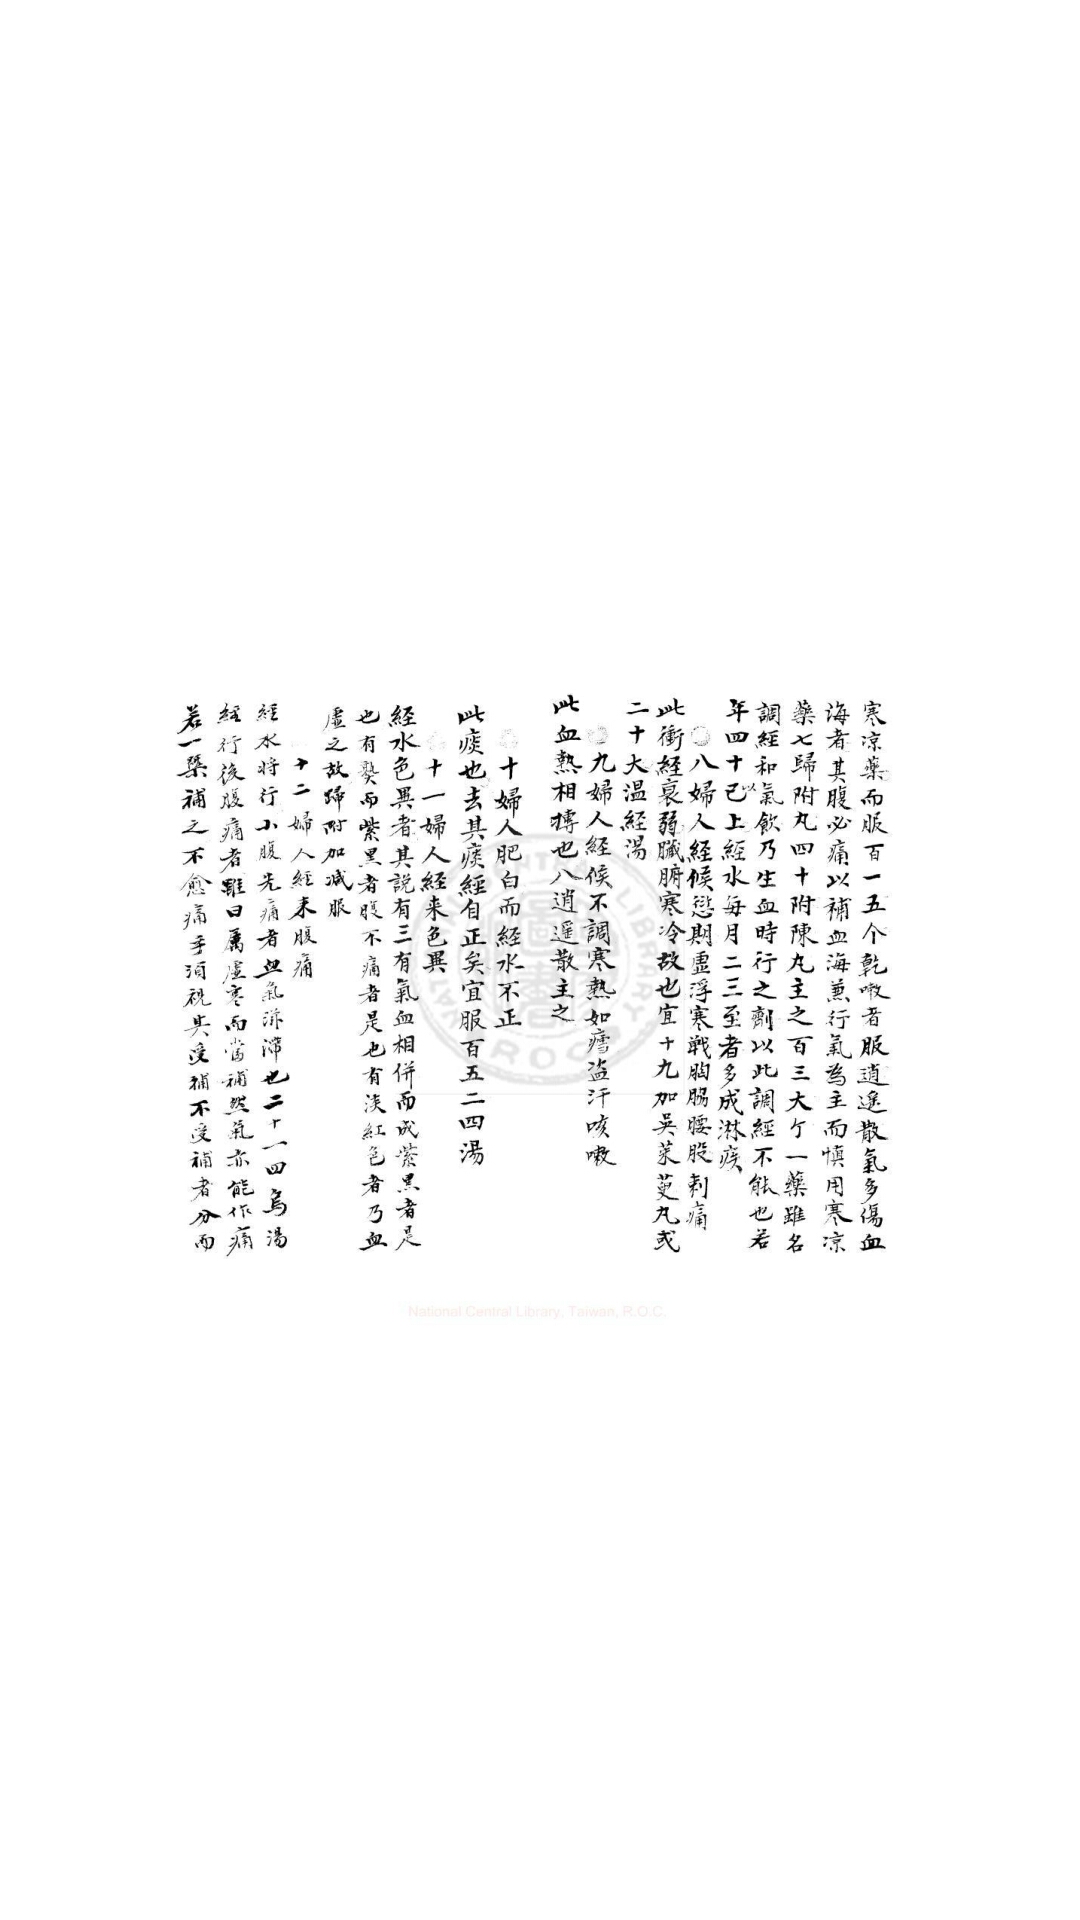 寒凉藥而服百一五个乾嗽者服逍遥散氣多傷血
海者其腹必痛以補血海兼行氣為主而慎用寒凉
藥七歸附丸四十附陳丸主之百三大ケ一藥雖名
調經和氣飲乃生血時行之劑以此調經不能也若
年四十已以上經水每月二三至者多成淋疾
八婦人經候愆期虛浮寒戰胸脇腰股刺痛
此衝經衰弱臟腑寒冷故也宜十九加吳茱萸丸或
二十大温經湯
九婦人經候不調寒熱如瘧盗汗咳嗽
此血熱相搏也八逍遥散主之
十婦人肥白而經水不正
此痰也去其痰經自正矣宜服百五二四湯
十一婦人經来色異
經水色異者其說有三有氣血相併而成紫黑者是
也有而紫黑者腹不痛者是也有淡紅色者乃血
虛之故歸附加减服
十二婦人經来腹痛
經水将行小腹先痛者血氣滞也二十一四烏湯
經行後腹痛者雖曰属虛寒而當補然氣亦能作痛
若一槩補之不愈痛乎須視其受補不受補者分而
National Central Library, Taiwan, R.O.C.